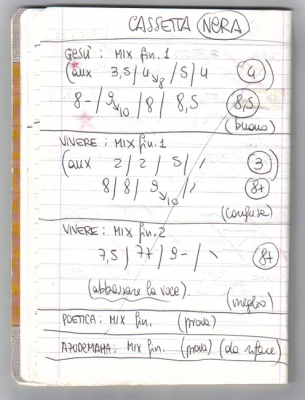 CASSETTA NERA
GESÙ: MIX fin. 1
(aux 3,5 / 4 ↘8 / 5 / 4 4
8- / 9 ↘10 / 8 / 8,5 8,5
(buono)
VIVERE: MIX fin. 1
(aux 2 / 2 / 5 / 3
8 / 8 / 9 ↘10 / 8+
(confuso)
VIVERE: MIX fin. 2
7,5 / 7+ / 9- / \ 8+
(abbassare la voce).
(meglio)
POETICA: MIX fin. (prova)
MIX fin. (prova) (da rifare)